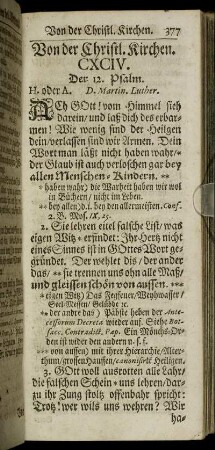 Von der Christl. Kirchen. 377
Von der Christl. Kirchen.
CXCIV.
Der 12. Psalm.
H. oder A. D. Martin. Luther.
ACh GOtt! vom Himmel sieh
darein/ und laß dich des erbar-
men! Wie wenig sind der Heilgen
dein/ verlassen sind wir Armen. Dein
Wort man läßt nicht haben wahr/*
der Glaub ist auch verloschen gar bey
allen Menschen-Kindern. **
* haben wahr) die Warheit haben wir wol
in Büchern/ nicht im Leben.
** bey allen) d. i. bey den allermeisten. Conf.
2. B. Mos. IX. 25.
2. Sie lehren eitel falsche List/ was
eigen Witz * erfindet: Ihr Hertz nicht
eines Sinnes ist in GOttes Wort ge-
gründet. Der wehlet dis/ der ander
das/** sie trennen uns ohn alle Maß/
und gleissen schön von aussen. ***
* eigen Witz) Das Fegfeuer/ Weyhwasser/
Seel-Messen/ Gelübde &c.
** der andre das) Päbste heben der Ante-
cessorum Decreta wieder auf. Siehe Bot-
sacc. Contradict. Pap. Ein Mönchs-Or-
den ist wider den andern u. s. f.
*** von aussen) mit ihrer Hierarchie/ Alter-
thum/ grossen Hauffen/ canonisirte Heiligen.
3. GOtt woll ausrotten alle Lahr/
die falschen Schein * uns lehren/ dar-
zu ihr Zung stoltz offenbahr spricht:
Trotz! wer wils uns wehren? Wir
ha-